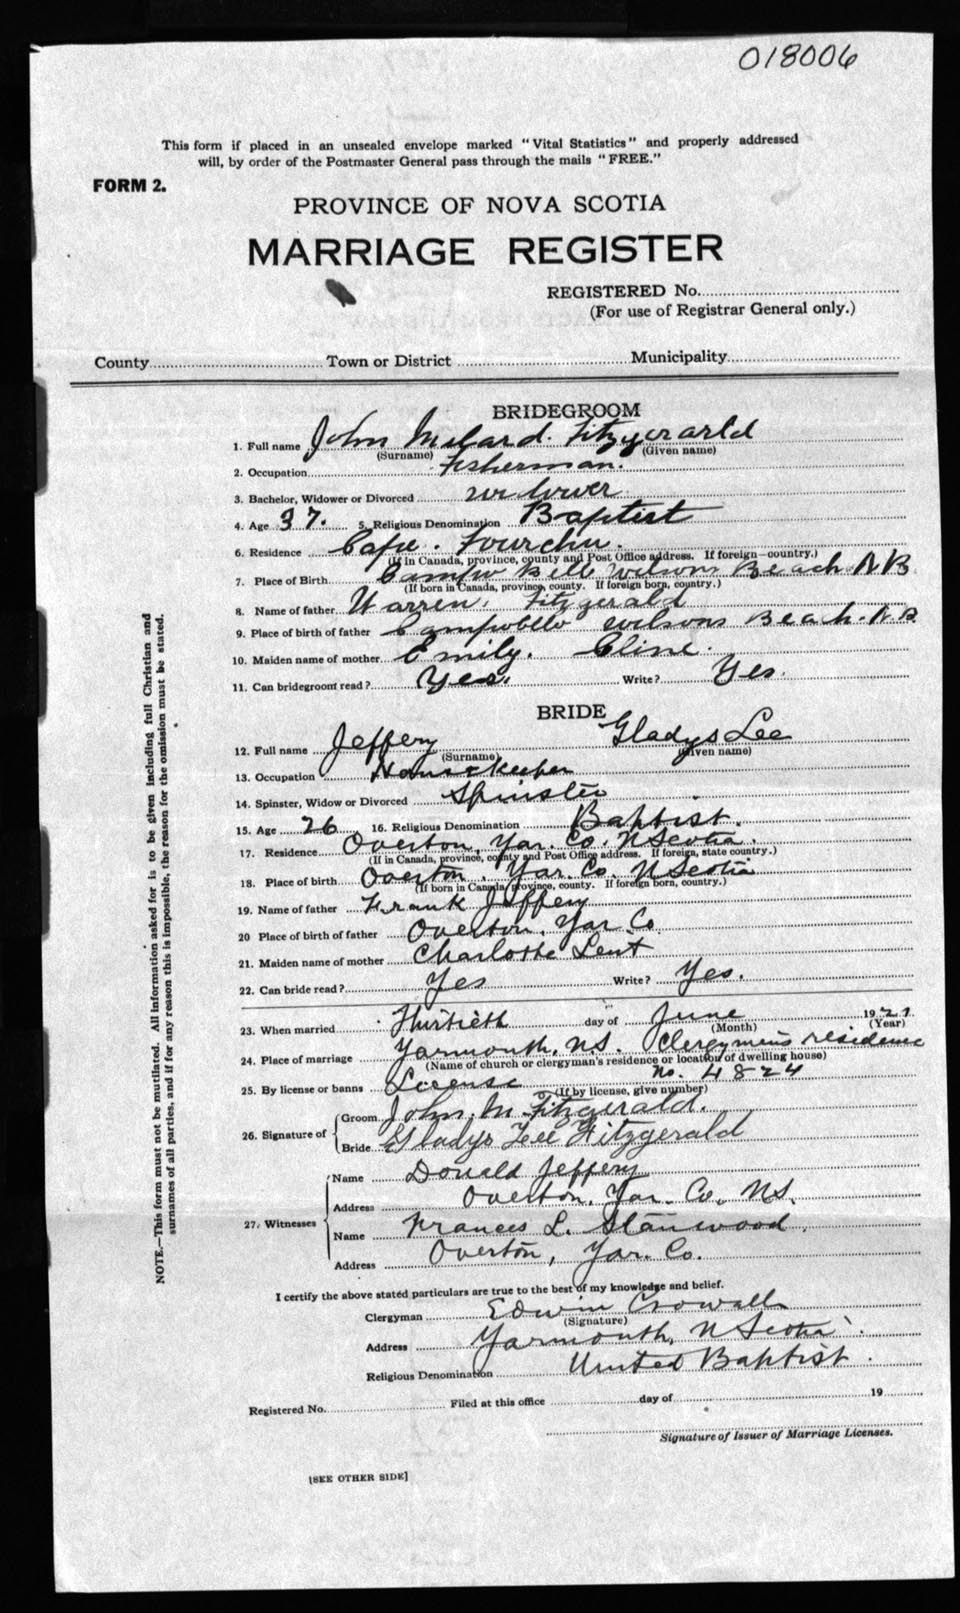 018006
This form if placed in an unsealed envelope marked "Vital Statistics" and properly addressed
will, by order of the Postmaster General pass through the mails "FREE."
FORM 2.
PROVINCE OF NOVA SCOTIA
MARRIAGE REGISTER
REGISTERED No.
(For use of Registrar General only.)
County Town or District Municipality
BRIDEGROOM
1. Full name John Milard. Fitzgerarld
(Surname) (Given name)
2. Occupation Fisherman.
3. Bachelor, Widower or Divorced widower
4. Age 37. 5. Religious Denomination Baptist
6. Residence Cape. Fourchu.
(If in Canada, province, county and Post Office address. If foreign—country.)
7. Place of Birth Campo Bello Wilsons Beach N B
(If born in Canada, province, county. If foreign born, country.)
8. Name of father Warren. Fitzgerald
9. Place of birth of father Campobello wilsons Beach. N.B.
10. Maiden name of mother Emily. Cline.
11. Can bridegroom read? Yes. Write? Yes.
BRIDE
12. Full name Jeffery Gladys Lee
(Surname) (given name)
13. Occupation Housekeeper
14. Spinster, Widow or Divorced Spinster
15. Age 26 16. Religious Denomination Baptist.
17. Residence Overton, Yar. Co. N Scotia.
(If in Canada, province, county and Post Office address. If foreign, state country.)
18. Place of birth Overton. Yar. Co. N Scotia
(If born in Canada, province, county. If foreign born, country.)
19. Name of father Frank Jeffery
20 Place of birth of father Overton, Yar Co.
21. Maiden name of mother Charlotte Lent
22. Can bride read? Yes Write? Yes.
23. When married Thirtieth day of June 1921.
(Month) (Year)
24. Place of marriage Yarmouth, N.S. Clergymen's residence
(Name of church or clergyman's residence or location of dwelling house)
25. By license or banns License No. 4824
(If by license, give number)
26. Signature of Groom John. M. Fitzgerald.
Bride Gladys Lee Fitzgerald
27. Witnesses
Name Donald Jeffery
Address Overton, Yar. Co. N.S.
Name Frances L. Stanwood.
Address Overton, Yar. Co.
I certify the above stated particulars are true to the best of my knowledge and belief.
Clergyman Edwin Crowell
(Signature)
Address Yarmouth, N Scotia.
Religious Denomination United Baptist.
Registered No. Filed at this office day of 19
Signature of Issuer of Marriage Licenses.
[SEE OTHER SIDE]
NOTE.—This form must not be mutilated. All information asked for is to be given including full Christian and
surnames of all parties, and if for any reason this is impossible, the reason for the omission must be stated.